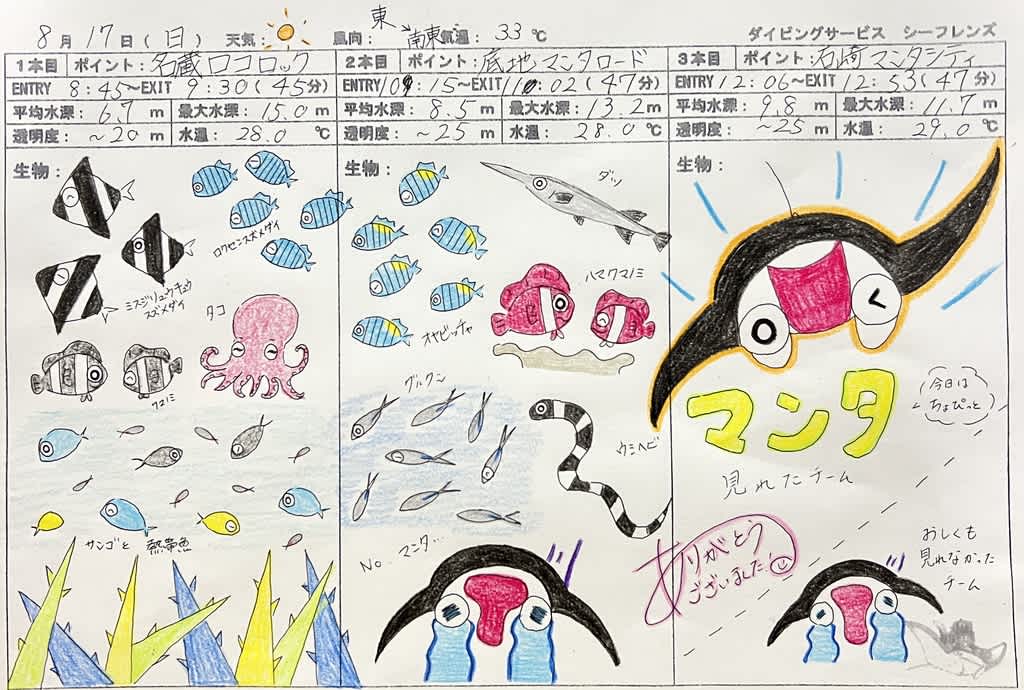 8月17日(日) 天気: 風向: 東 南東 気温: 33℃ ダイビングサービス シーフレンズ
1本目 ポイント: 名蔵ロコロック
ENTRY 8:45~EXIT 9:30(45分)
平均水深: 6.7 m 最大水深: 15.0 m
透明度: ~20 m 水温: 28.0 ℃
生物:
ロクセンスズメダイ
ミスジリュウキュウ
スズメダイ
タコ
クマノミ
サンゴと 熱帯魚
2本目 ポイント: 底地マンタロード
ENTRY 10:15~EXIT 11:02(47分)
平均水深: 8.5 m 最大水深: 13.2 m
透明度: ~25 m 水温: 28.0 ℃
生物:
ダツ
ハマクマノミ
オヤビッチャ
グルクン
ウミヘビ
No マンタ…
3本目 ポイント: 石崎マンタシティ
ENTRY 12:06~EXIT 12:53(47分)
平均水深: 9.8 m 最大水深: 11.7 m
透明度: ~25 m 水温: 29.0 ℃
生物:
マンタ
今日は
ちょぴっと
見れたチーム
ありがとう
ございました
おしくも
見れなかった
チーム